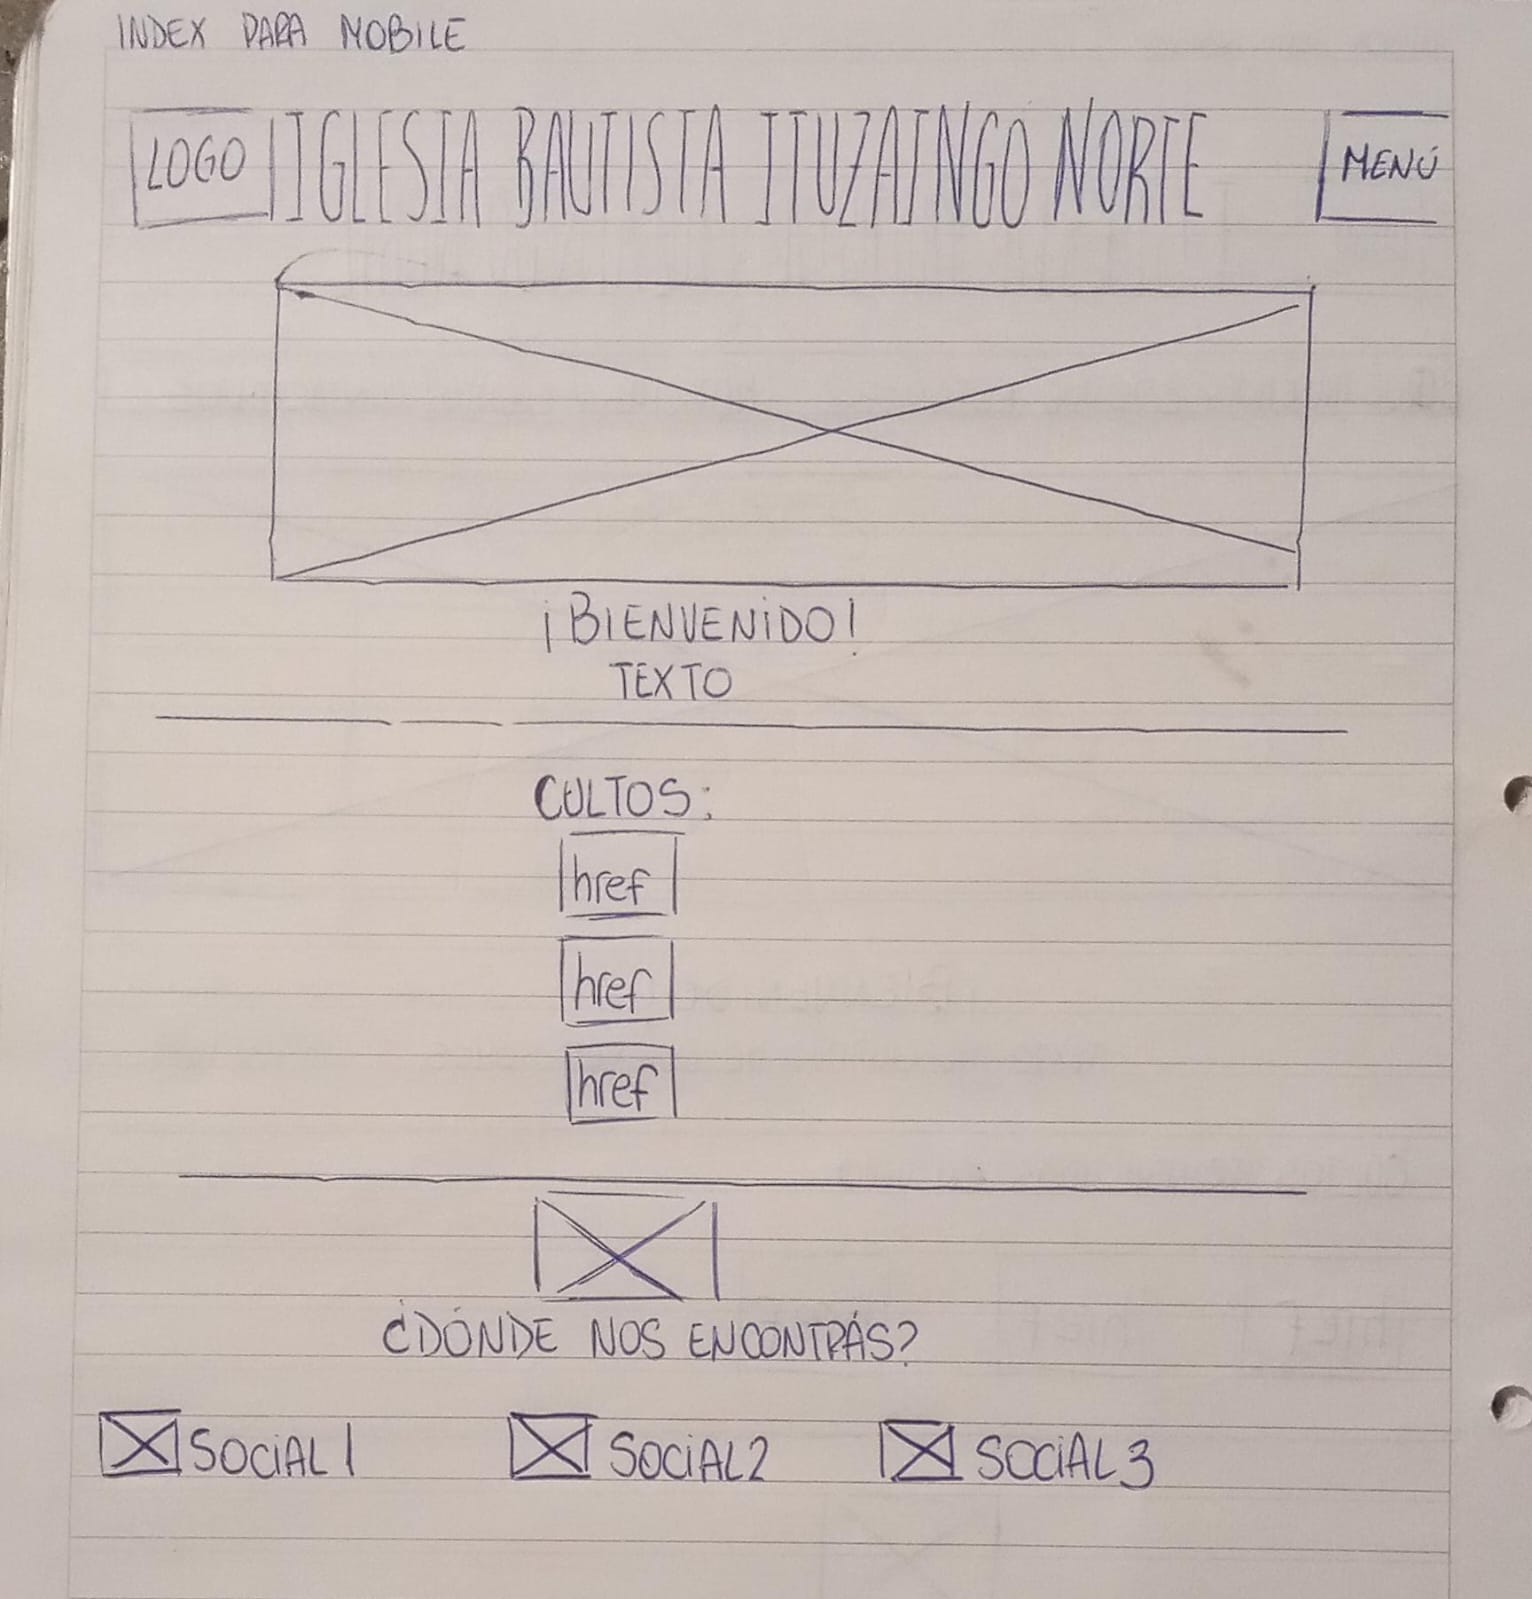 INDEX PARA MOBILE
LOGO IGLESIA BAUTISTA ITUZAINGÓ NORTE MENÚ
¡BIENVENIDO!
TEXTO
CULTOS:
href
href
href
¿DÓNDE NOS ENCONTRÁS?
SOCIAL 1 SOCIAL 2 SOCIAL 3